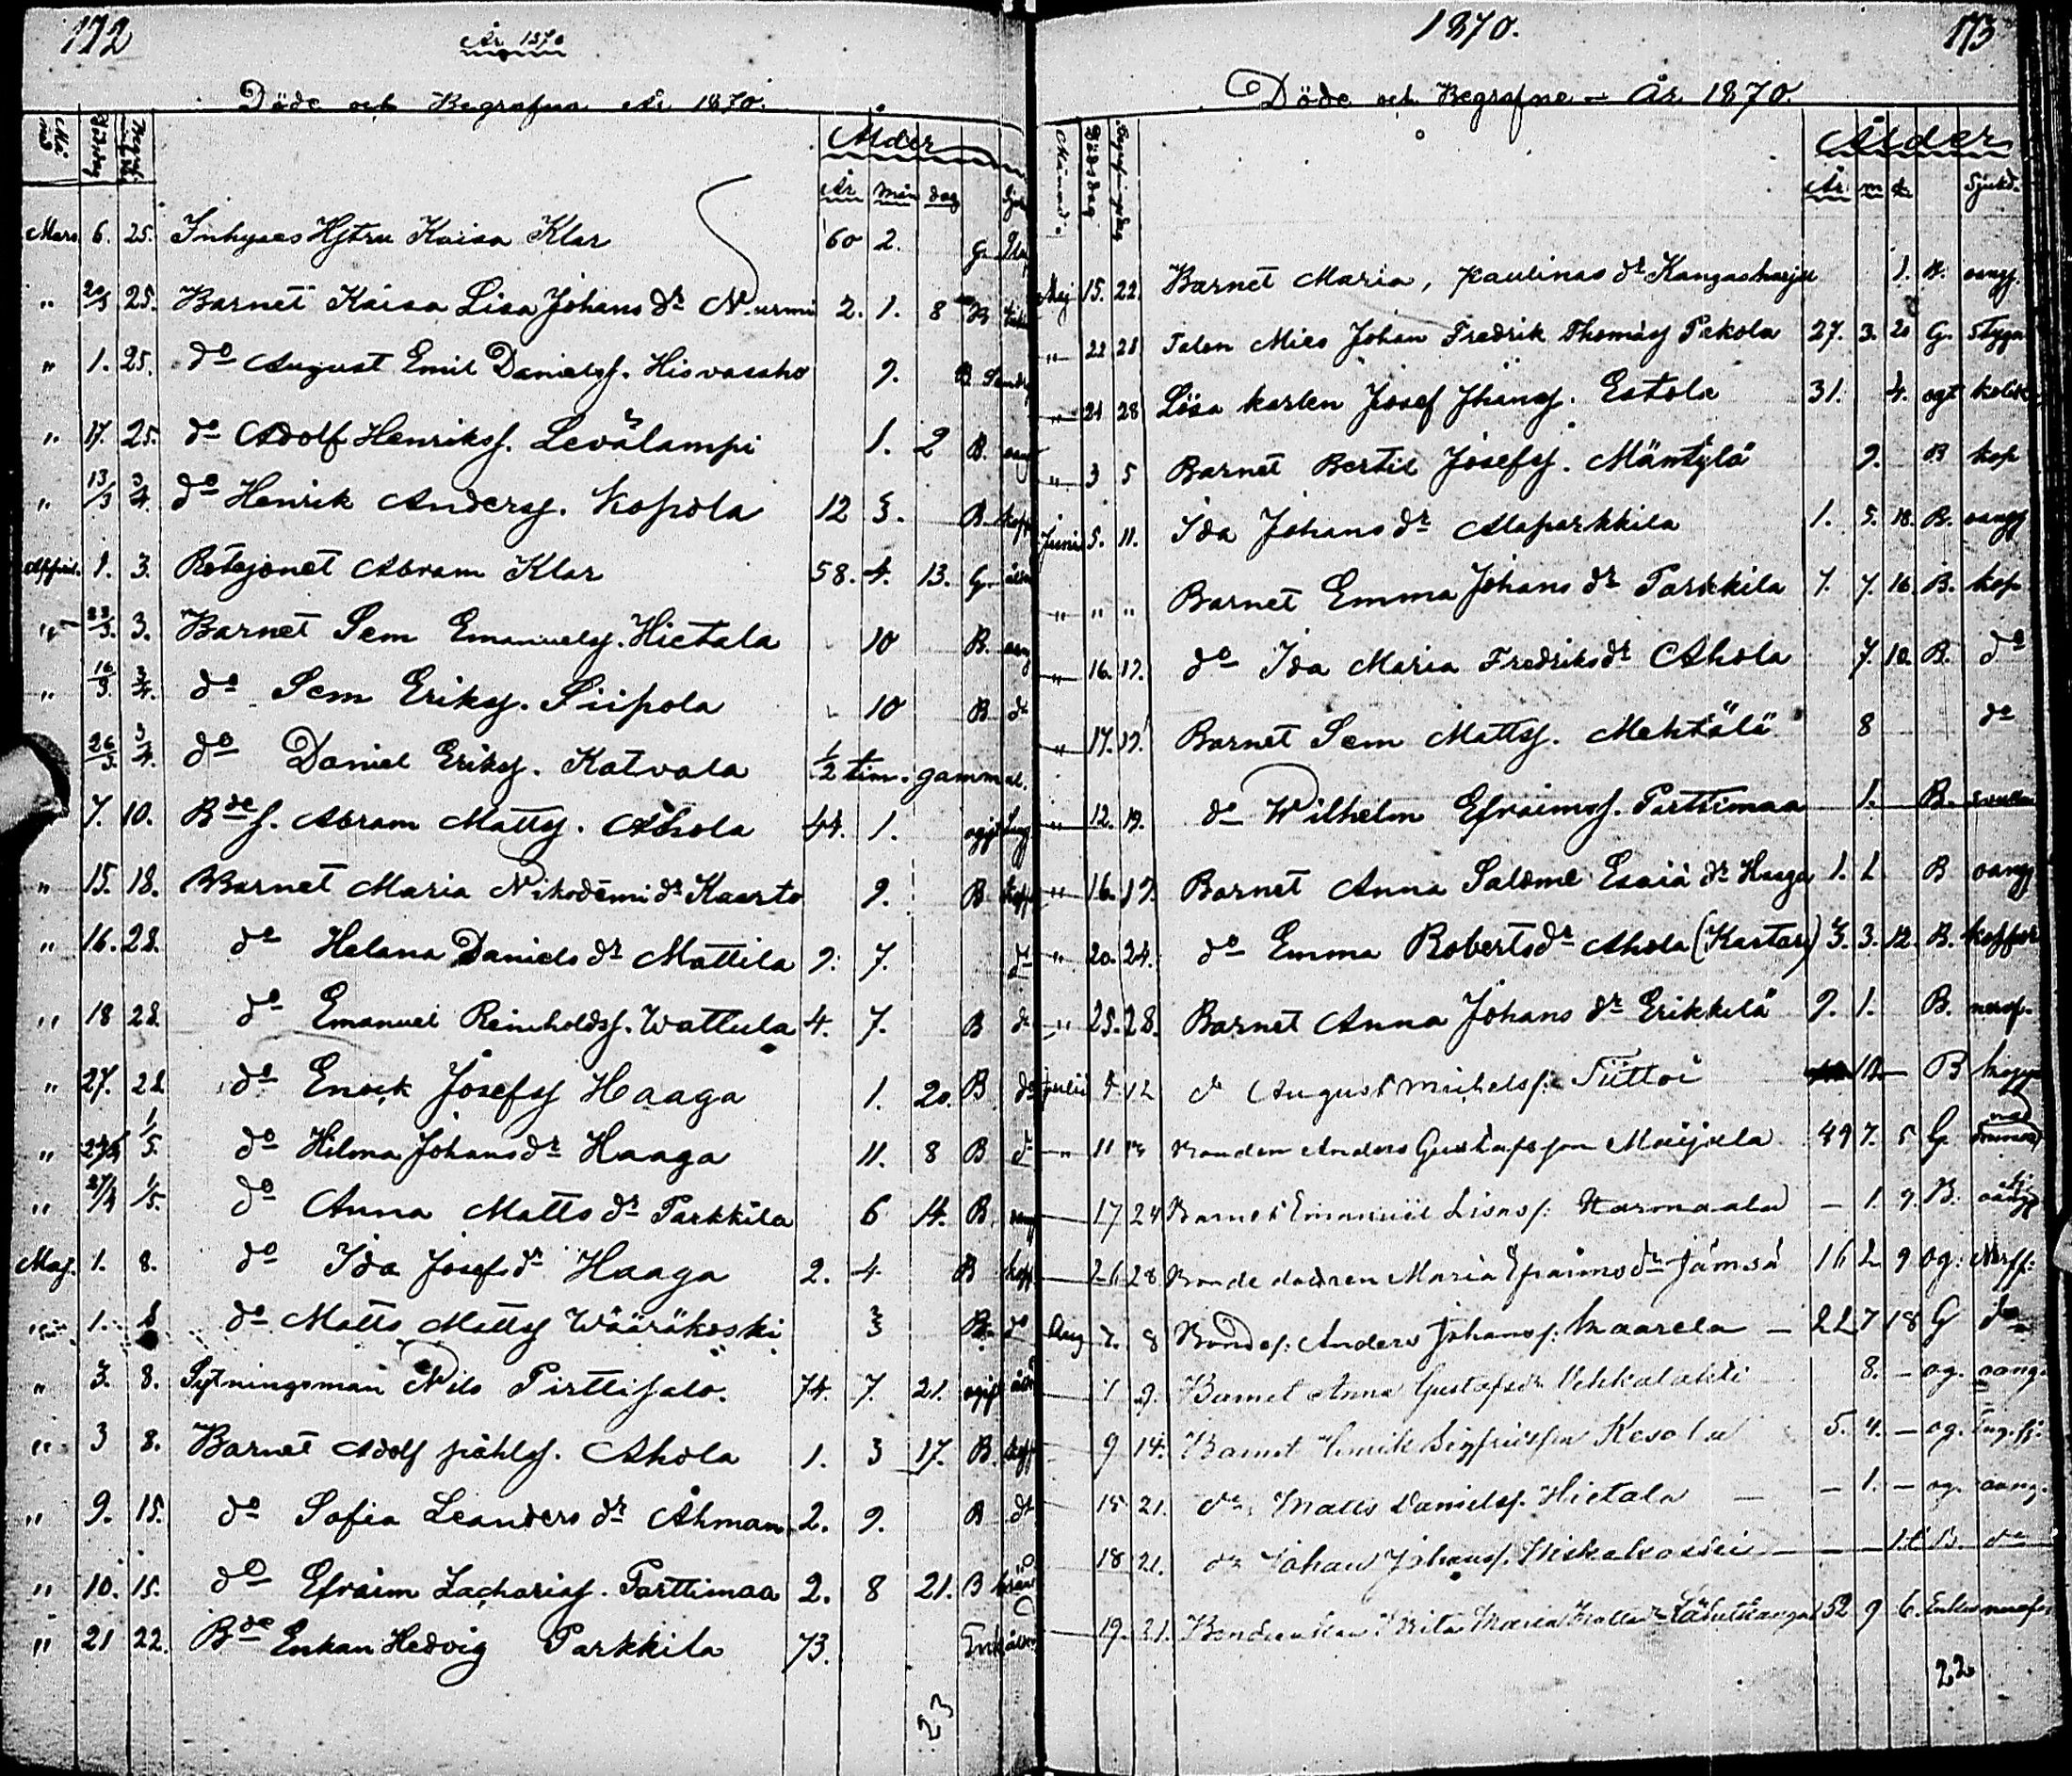 172
År 1870
Döde och Begrafna År 1870.
Ålder
År mån dag
Mars 6. 25. Inhyses Hstru Kaisa Klar 60 2. G.
" 20/3 25. Barnet Kaisa Lisa Johans dr Nurmi 2. 1. 8 B
" 1. 25. do August Emil Danielss. Hisvasaho 9. B.
" 17. 25. do Adolf Henrikss. Levälampi 1. 2 B.
" 13/3 3/4 do Henrik Anderss. Kopola 12 3. B. kopp
April. 1. 3. Rotejonet Abram Klar 58. 4. 13. G.
" 23/3. 3. Barnet Sem Emanuelss. Hietala 10 B.
" 16/3 3/4. do Sem Erikss. Siipola 10 B do
26/3. 3/4. do Daniel Erikss. Katvala 1/2 tim. gammal.
7. 10. Bde s. Abram Matts. Ahola 44. 1. ogift
" 15. 18. Barnet Maria Nikodemi dr Kaarto 9. B kopp
" 16. 28. do Helana Daniels dr Mattila 9. 7. do
" 18 28. do Emanuel Reinholdss. Wattula 4. 7. B do
" 27. 28 do Enock Josefss Haaga 1. 20. B do
" 27/4 1/5. do Hilma Johans dr Haaga 11. 8 B do
" 27/4 1/5. do Anna Matts dr Parkkila 6 14. B.
Maj. 1. 8. do Ida Josefs dr Haaga 2. 4. B kopp
1. 8 do Matts Mattss Wääräkoski 3 B. do
" 3. 8. Sytningsman Nils Pirttisalo. 74. 7. 21. ogift
" 3 8. Barnet Adolf påhlss. Ahola 1. 3 17. B. kopp
" 9. 15. do Sofia Leanders dr Åhman 2. 9. B do
" 10. 15. do Efraim Zachariass. Parttimaa 2. 8 21. B
" 21 22. Bde Enkan Hedvig Parkkila 73. Enk
23
1870.
173
Döde och Begrafne - År 1870.
Månad Dödsdag Begrafningsdag
Ålder
År m d. Sjukd.
Maj 15. 22. Barnet Maria, Paulinas dr Kangasharju 1. B. oangf.
" 22 28 Talon Mies Johan Fredrik Thomass Pekola 27. 3. 20 G. Stygn
" 21 28 Lösa karlen Josef Jhanss. Eskola 31. 4. ogt kolik
" 3 5 Barnet Bertil Josefss. Mäntylä 9. B kop
Juni 5. 11. Ida Johans dr Alaparkkila 1. 5. 18. B. oangf
" " " Barnet Emma Johans dr Parkkila 7. 7. 16. B. kop
" 16. 19. do Ida Maria Fredriks dr Ahola 7. 10. B. do
" 17. 19. Barnet Sem Mattss. Mehtälä 8 do
" 12. 19. do Wilhelm Efraimss. Parttimaa 1. B.
" 16. 19. Barnet Anna Salome Esaiä dr Haaga 1. 1. B oangf
" 20. 24. do Emma Roberts dr Ahola (Kastari) 3. 3. 12. B. koppor
" 25. 28. Barnet Anna Johans dr Erikkilä 9. 1. B. nervf.
Julii 12 do August Michelss. Tiittoi 10 B kopp
" 11 Bonden Anders Gustafsson Maijala 49 7. 5 G
17 24 Barnet Emanuel Lisas s. Harmaala — 1. 9. B. oangf
26 28 Bonde dottren Maria Efraims dr Jämsä 16 2 9 og. Nerff.
Aug 7. 8 Bondes. Anders Johanss. Maarela — 22 7 18 G do
7 9. Barnet Anna Gustafs dr Vehkalahti 8. — og. oang.
9 14. Barnet Henrik Sigfridsson Kesola 5. 4. — og.
15 21. do Matts Danielss. Hietala — — 1. — og. oang.
18 21. do Johan Johanss. Niskakoski — — — B. do
19. 21. Bondeenkan Brita Maria Matts dr 52 9 6. Enka nervfe
22